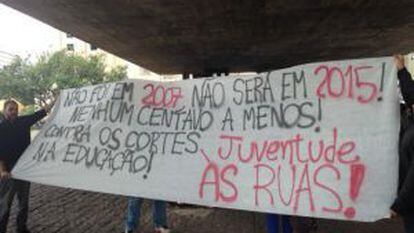 NÃO FOI EM 2007 NÃO SERÁ EM 2015!
NENHUM CENTAVO A MENOS!
CONTRA OS CORTES
NA EDUCAÇÃO!
Juventude
ÀS RUAS!